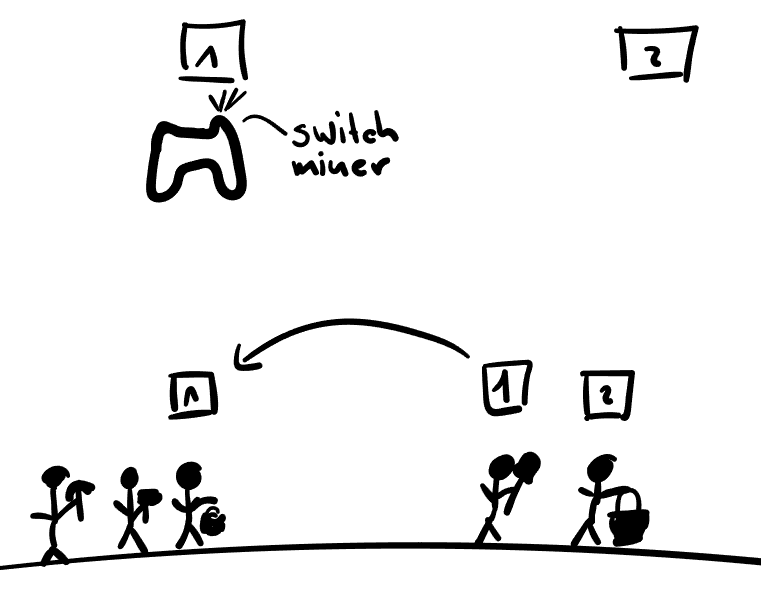 1
2
switch
miner
1
1
2